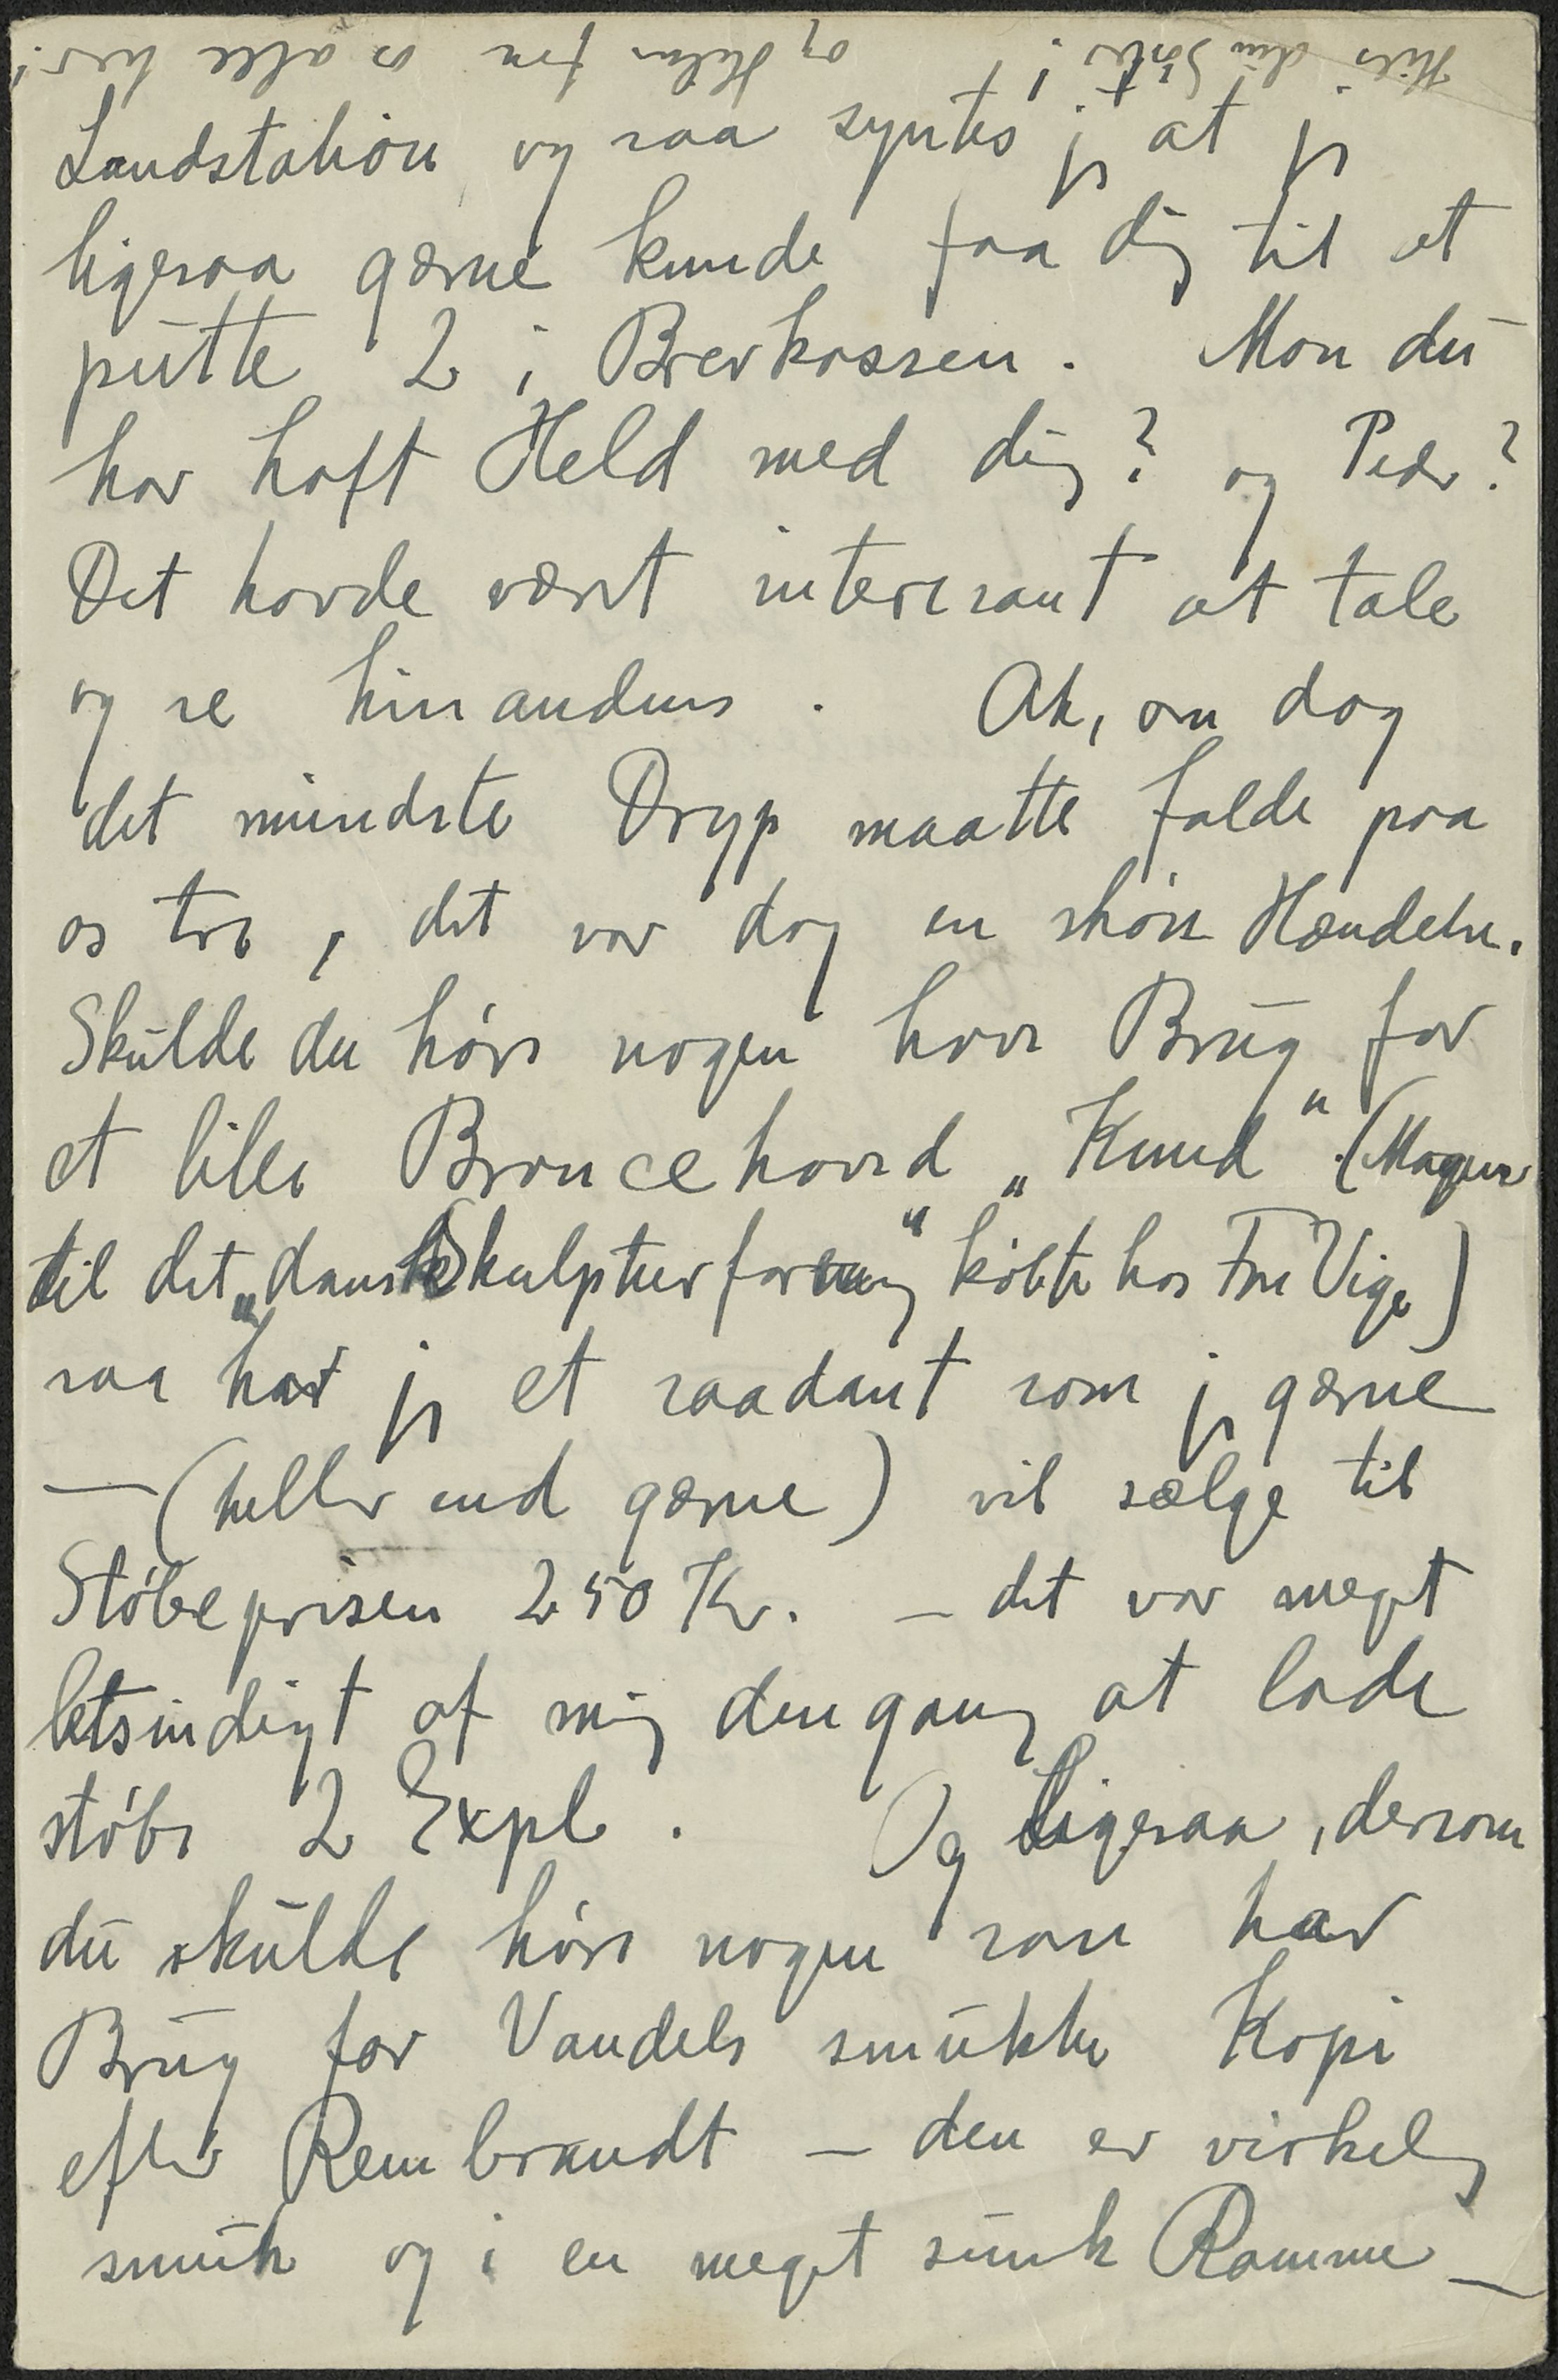 Hils din Søster! og Hilsen fra os alle her!
Landstation, og saa syntes jeg at jeg
ligesaa gærne kunde faa dig til at
putte 2 i Brevkassen. Mon du
har haft Held med dig? og Peder?
Det havde været interesant at tale
og se hinandens. Ak, om dog
det mindste Dryp maatte falde paa
os tre, det var dog en skøn Hændelse.
Skulde du høre nogen have Brug for
et lille Broncehoved „Knud“ (Magen
til det „dansk Skulpturforening“ købte hos Fru Vige)
saa har jeg et saadant som jeg gærne
— (heller end gærne) vil sælge til
Støbeprisen 250 Kr. — det var meget
letsindigt af mig dengang at lade
støbe 2 Expl. Og ligesaa, dersom
du skulde høre nogen som har
Brug for Vandels smukke Kopi
efter Rembrandt — den er virkelig
smuk og i en meget smuk Ramme —